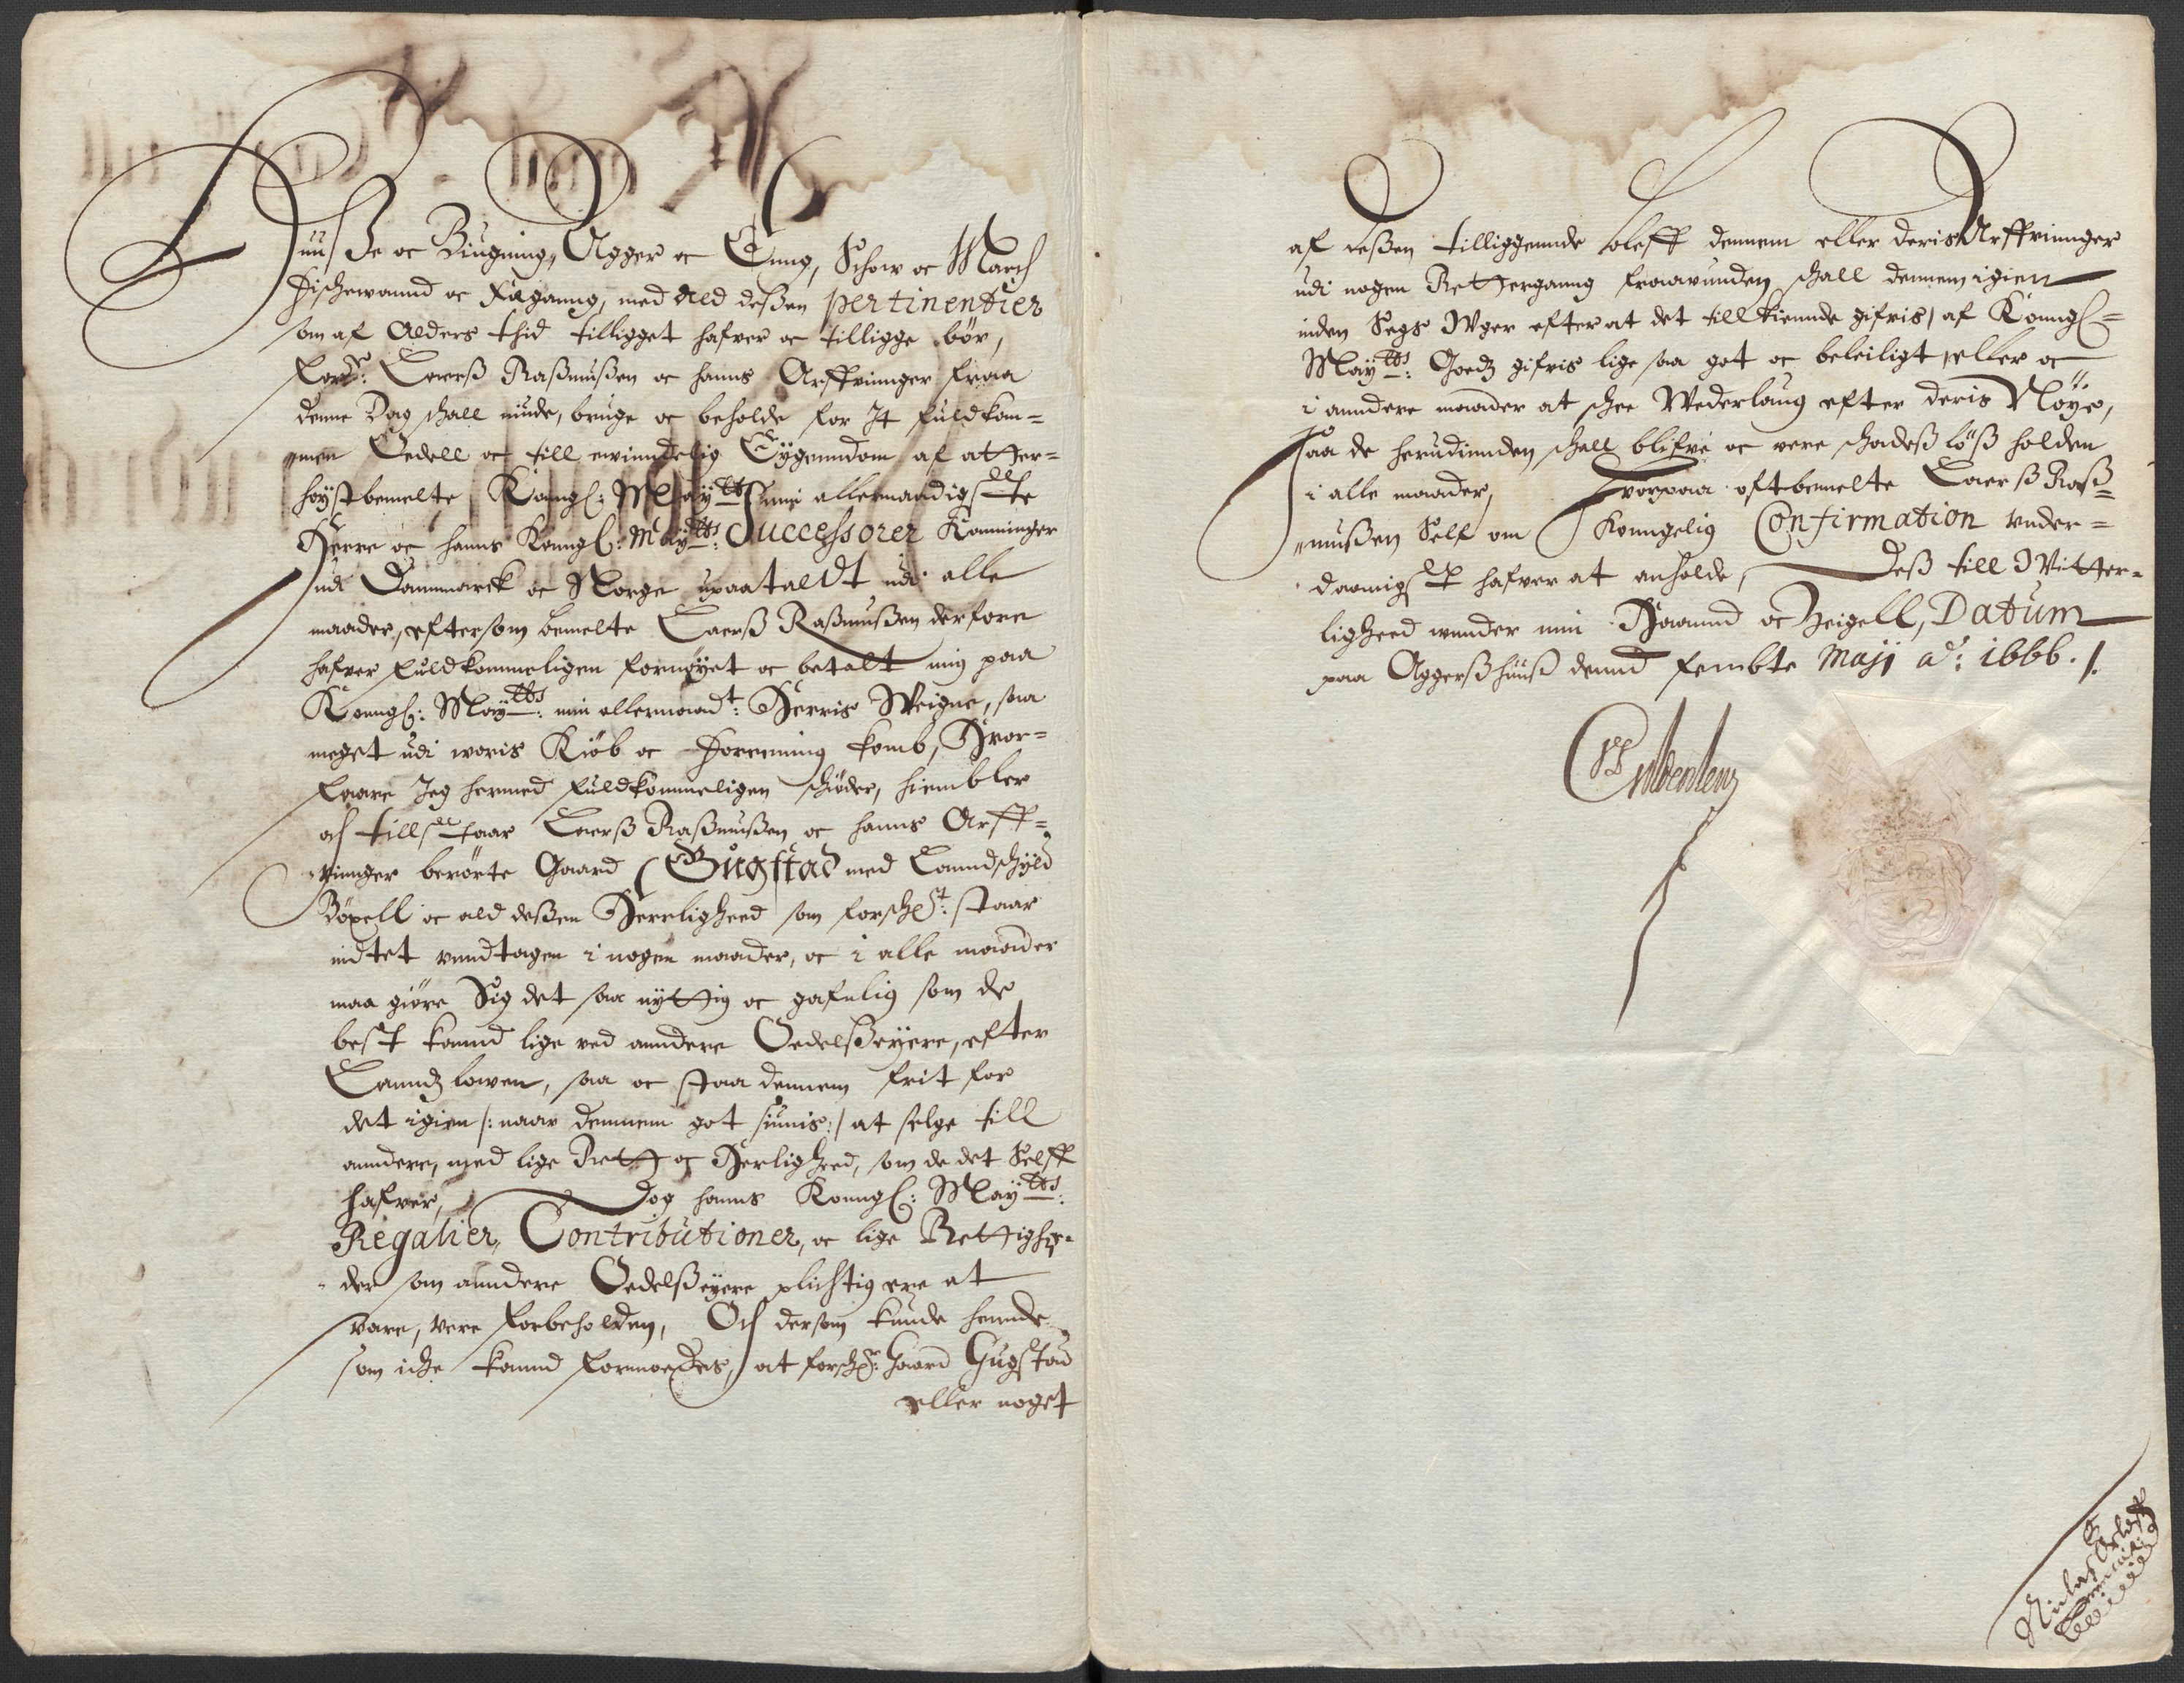 Huuße oc Biugning, Agger oc Enng, Schow oc March
Fischewannd oc Fæganng, med Ald deßen pertinentier
som af Alders thid tilligget hafver oc tilligge bör,
Lauerß Raßmußen oc hanns Arffvinger fraa
denne Dag schall niude, bruge oc beholde for It fuldkom-
men Oedell oc till ewinndelig Eygenndom af atter-
höystbemelte Konngl: Mayts: min allernaadigste
Herre oc hanns Konngl: Mayts: Successorer Konninger
udi Dannmarck oc Norge upaataldt udi alle
maader, eftersom bemelte Lauerß Raßmußen derfore
hafver fuldkommeligen fornöyet oc betalt mig paa
Konngl: Mayts: min allernaadt: Herris Weigne, saa
meget udi woris Kiöb oc Forening komb, Hvor-
faare Jeg hermed fuldkommeligen schiöder, hiembler
och tillstaar Lauerß Raßmußen oc hanns Arff-
vinger berörte Gaard Gugstad med Lanndschyld
Böxell oc ald deßen Herrligheed som forsch: staar
indtet unndtagen i nogen maader, oc i alle maader
maa giöre Sig det saa nyttig oc gafnlig som de
best kannd lige ved anndere Oedelßeyere, efter
Lanndz lowen, saa oc staa dennem frit for
det igien /: naar dennem got siunis :/ at selge till
anndere, med lige Rett oc Herligheed, som de det Selff
hafver, Dog hanns Konngl: Mayts:
Regalier, Contributioner, oc lige Rettighee-
der som anndere Oedelßeyere plichtig ere at
svare, vere forbeholden, Och dersom kunde hennde
som icke kannd formoedes, at forsch: Gaard Gugstad
eller noget
af deßen tilliggennde bleff dennem eller deris Arffvinger
udi nogen Retterganng fraawunden, schall dennem igien
inden Sex Wger efter at det tillkiennde gifvis, af Konngl-
Mayts: Goedz gifvis lige saa got oc beleiligt, eller oc
i anndere maader at schee Wederlaug efter deris Nöye,
Saa de herudinnden schall blifve oc vere schadeßlöß holden
i alle maader, Hvorpaa oftbemelte Lauerß Raß-
mußen Self om Konngelig Confirmation under-
daanigst hafver at anholde, Deß till Witter-
ligheed unnder min Haannd oc Zeigell, Datum
paa Aggerßhuuß dennd fembte Maji ao: 1666. /.